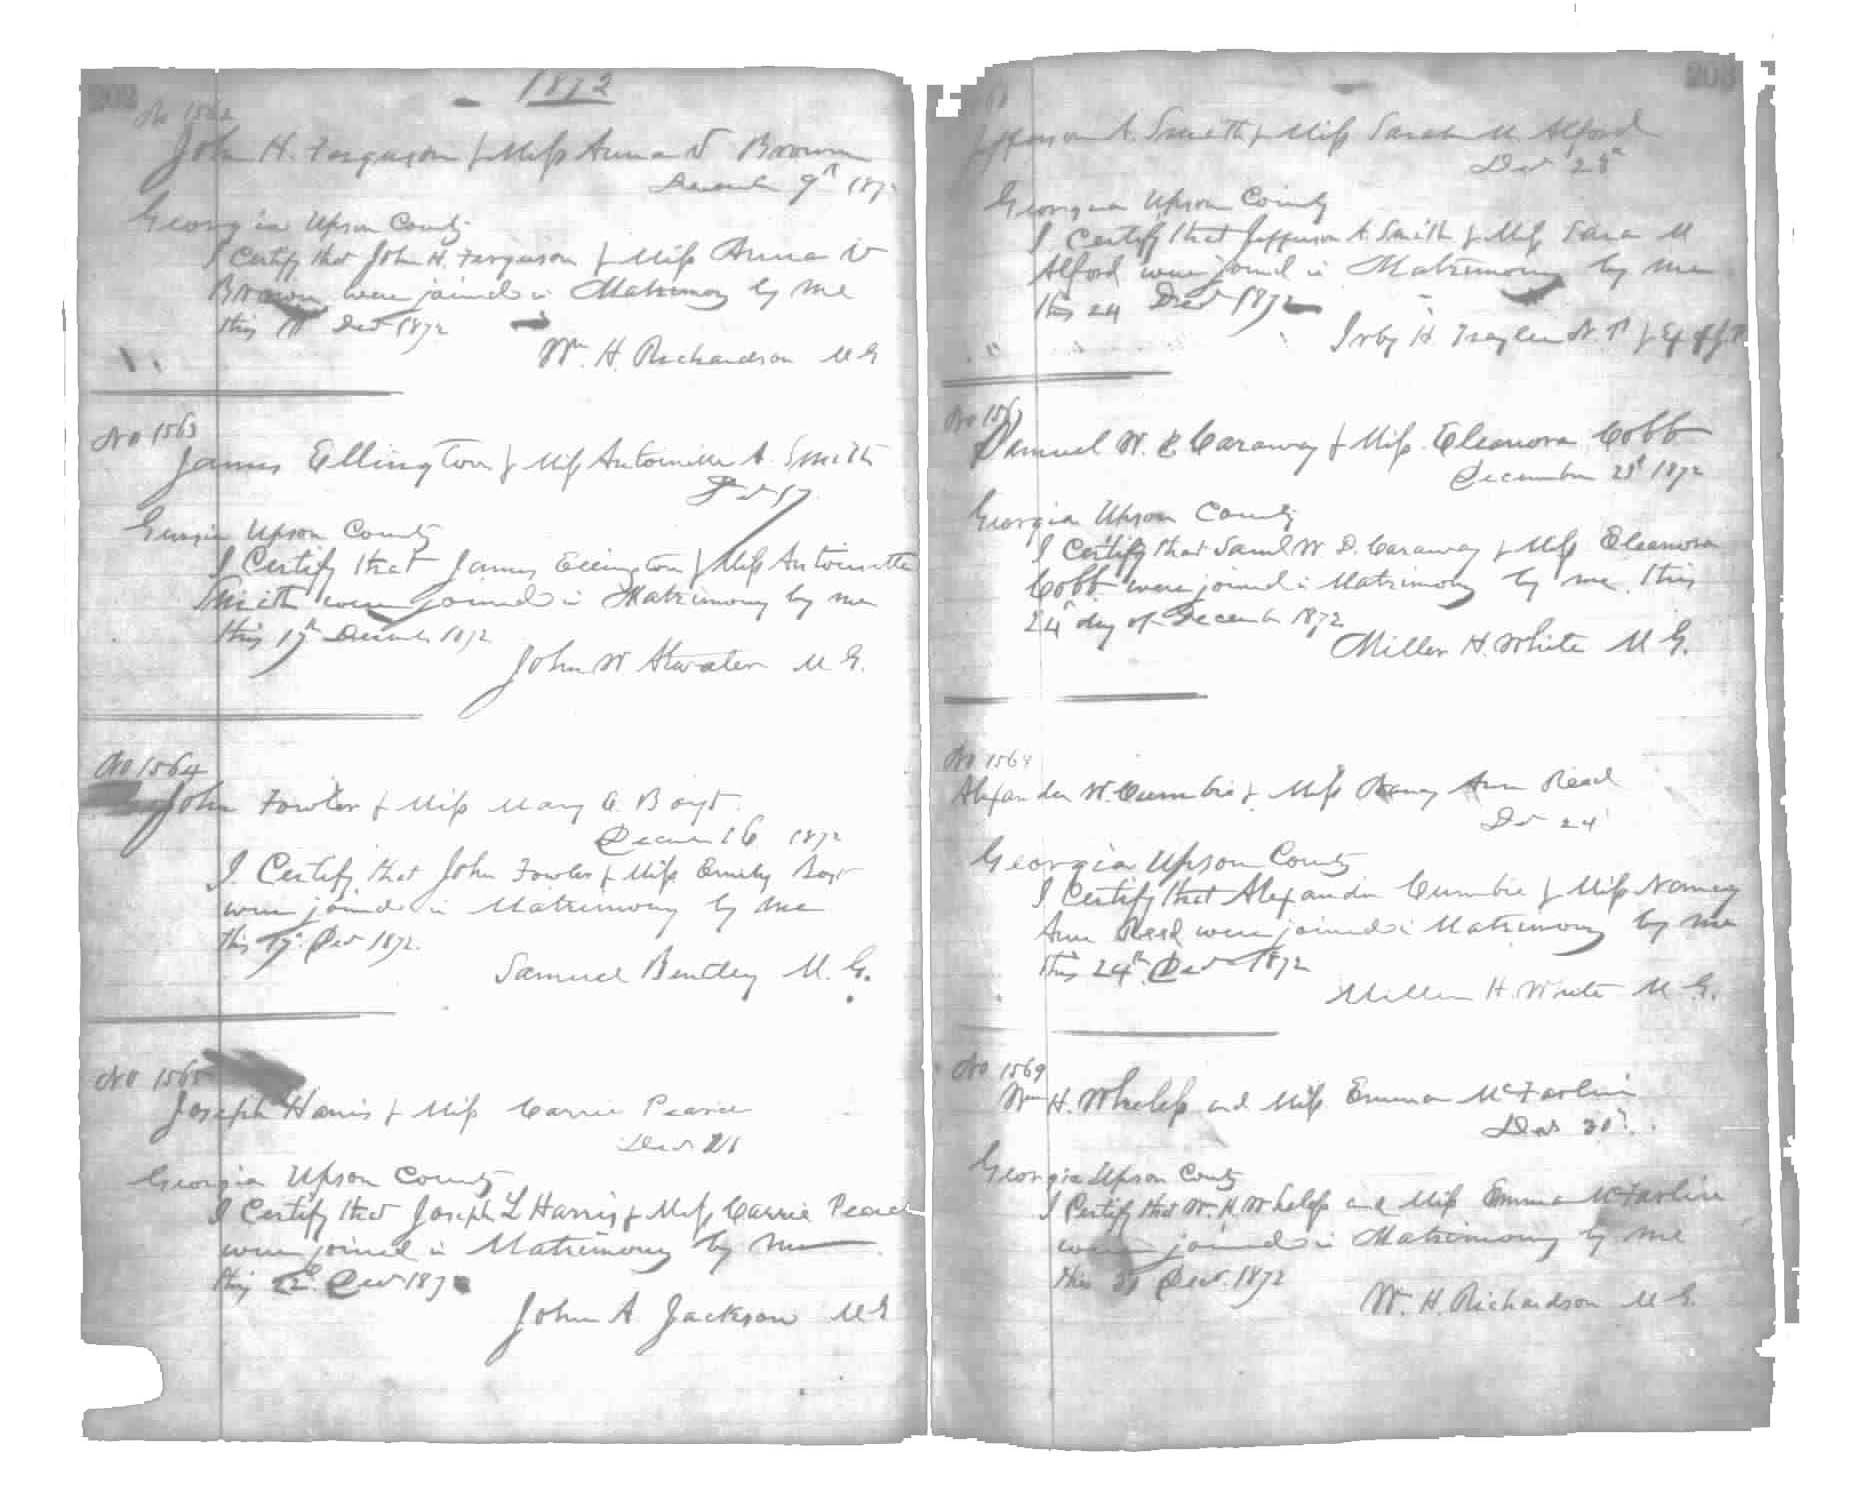 202
1872
No 1562
John H. Ferguson & Miss Anna V Brown
December 9th 187
Georgia Upson County
I Certify that John H. Ferguson & Miss Anna V
Brown were joined in Matrimony by me
this Decr 1872
Wm. H. Richardson M G
No 1563
James Ellington & Miss Antoinette A. Smith
17
Georgia Upson County
I Certify that James Ellington & Miss Antoinette
Smith were joined in Matrimony by me
this 17th December 1872
John W Atwater M G.
No 1564
John Fowler & Miss Mary A. Boyt.
16 1872
I Certify that John Fowler & Miss Boyt
were joined in Matrimony by me
this 17th Decr 1872.
Samuel Bentley M. G.
No 1565
Joseph Harris & Miss Carrie Pearce
Decr 21
Georgia Upson County
I Certify that Joseph L Harris & Miss Carrie Pearce
were joined in Matrimony by me
this 22d. Decr 187
John A Jackson M G
203
Jefferson A. Smith & Miss Sarah M. Alford
Decr
Georgia Upson County
I Certify that Jefferson A. Smith & Miss Sara M
Alford were joined in Matrimony by me
this 24 Decr 1872
Irby H Traylor N. P & Ex off J.P.
No 1567
Samuel W. Caraway & Miss Eleanora Cobb
December 1872
Georgia Upson County
I Certify that Saml W D. Caraway & Miss Eleanora
Cobb were joined in Matrimony by me this
24th day of December 1872
Miller H. White M G.
No 1568
Alexander W. Cumbie & Miss Nancy Ann Reed
Dec 24
Georgia Upson County
I Certify that Alexander Cumbie & Miss Nancy
Ann Reed were joined in Matrimony by me
this 24th Decr 1872
Miller H. White M G.
No 1569
Wm H. Wheless and Miss Emma McFarlin
Decr
Georgia Upson County
I Certify that W. H. Wheless and Miss Emma McFarlin
were joined in Matrimony by me
this Decr. 1872
W. H. Richardson M G.